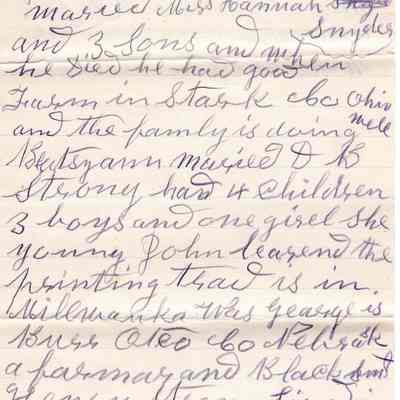 maried Miss Hannah
Snyder
and 3 Sons and when
he died he had good
Farm in Stark Co Ohio
and the famly is doing well
Bettsyann maried D B
Strong had 4 Children
3 boys and one girel She
young John learend the
printing trad is in.
Millwauka Was George is
Burr Oteo Co Nebrask
a farmar and Black smt